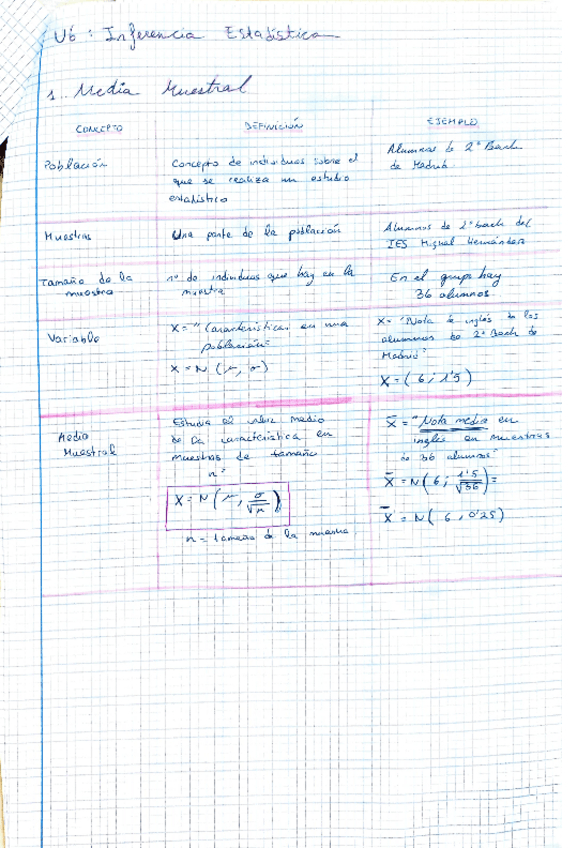 U6: Inferencia Estadística
1. Media Muestral
CONCEPTO DEFINICIÓN EJEMPLO
Población
Concepto de individuos sobre el
que se realiza un estudio
estadístico
Alumnos de 2º Bach
de Madrid.
Muestras
Una parte de la población
Alumnos de 2º bach del
IES Miguel Hernández
Tamaño de la
muestra
nº de individuos que hay en la
muestra
En el grupo hay
36 alumnos.
Variable
X = "Características en una
población"
X = N (μ, σ)
X = "Nota de inglés de los
alumnos de 2º Bach de
Madrid"
X = (6; 1'5)
Media
Muestral
Estudia el valor medio
de la característica en
muestras de tamaño
n"
X = N (μ, σ/√n)
n = tamaño de la muestra
X̄ = "Nota media en
inglés en muestras
de 36 alumnos"
X̄ = N (6; 1'5/√36) =
X̄ = N (6, 0'25)